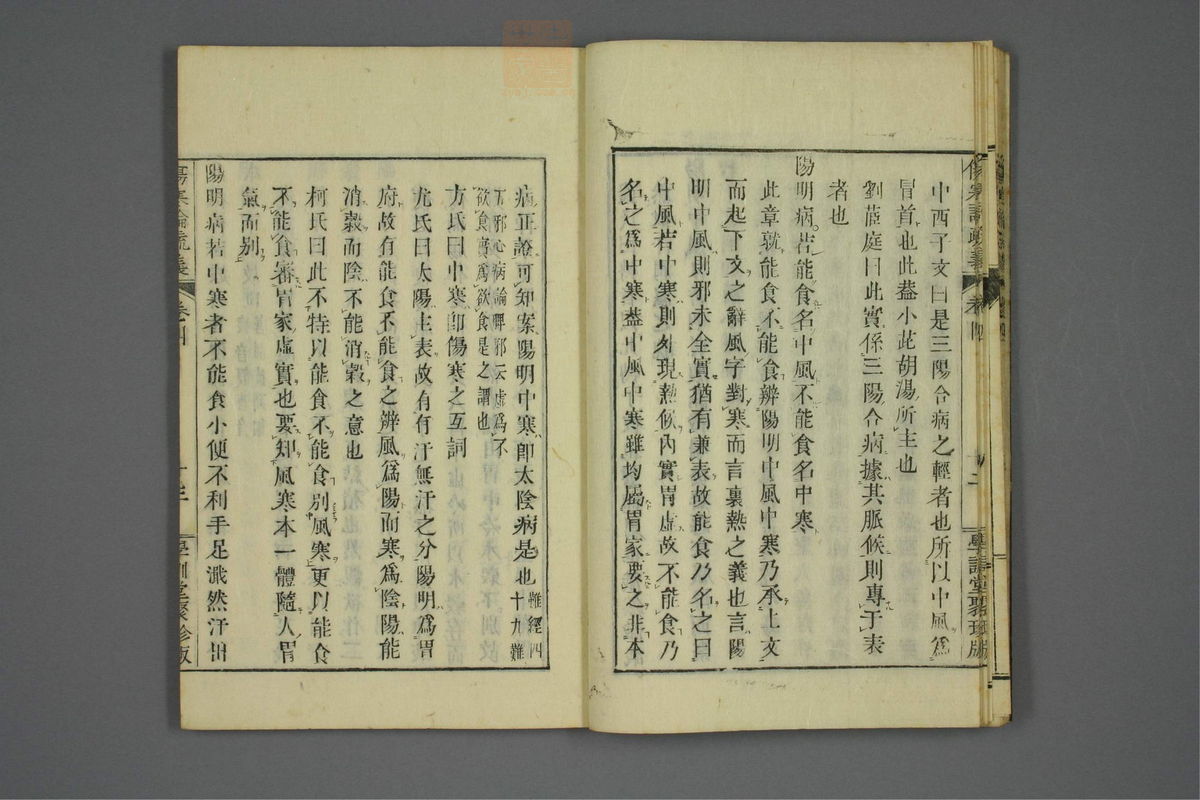 中西子文曰是三陽合病之輕者也所以中風爲
冒首也此葢小茈胡湯所主也
劉茝庭曰此實係三陽合病據其脈候則專于表
者也
陽明病若能食名中風不能食名中寒
此章就能食不能食辨陽明中風中寒乃承上文
而起下文之辭風字對寒而言裏熱之義也言陽
明中風則邪未全實猶有兼表故能食乃名之曰
中風若中寒則外現熱候內實胃虛故不能食乃
名之爲中寒葢中風中寒雖均屬胃家要之非本
病正證可知案陽明中寒卽太陰病是也難經四
十九難
五邪心病論脾邪云虛爲不
欲食實爲欲食是之謂也
方氏曰中寒卽傷寒之互詞
尤氏曰太陽主表故有有汗無汗之分陽明爲胃
府故有能食不能食之辨風爲陽而寒爲陰陽能
消穀而陰不能消穀之意也
柯氏曰此不特以能食不能食別風寒更以能食
不能食審胃家虛實也要知風寒本一體隨人胃
氣而別
陽明病若中寒者不能食小便不利手足濈然汗出
傷寒論疏義
卷四
十三
學訓堂聚珍版